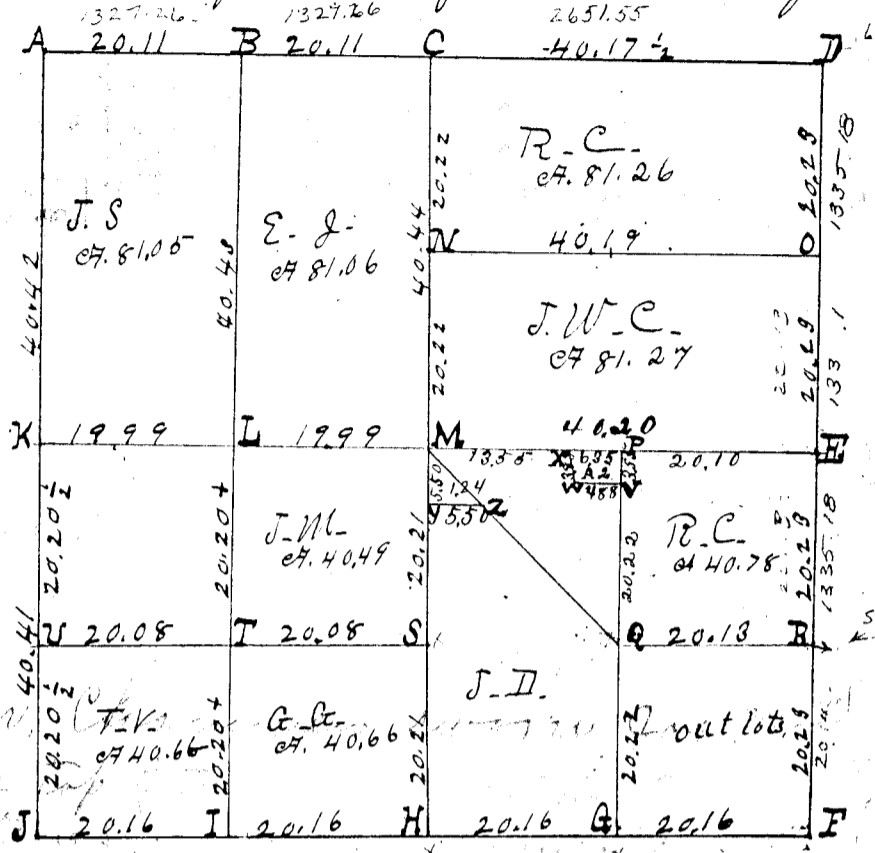 1327.26 1327.26 2651.55
A 20.11 B 20.11 C 40.17 ½ D
R_C_
A. 81.26
20.22
20.29
1335.18
J.S
A. 81.05
E_J_
A 81.06
N 40.19 O
40.42
40.43
40.44
J.W_C_
A 81.27
20.22
20.29
K 19.99 L 19.99 M 40.20 E
13.35 X 6.35 P 20.10
A 2
4.88
5.50 1.24
Y 5.50 Z
20.20 ½
20.20+
J_M_
A. 40.49
20.21
20.22
R_C_
A 40.78
20.29
1335.18
U 20.08 T 20.08 S Q 20.13 R
40.41
20.20 ½
T_V_
A 40.66
20.20+
G_G_
A. 40.66
20.21
J_D_
20.22
2 out lots
20.29
J 20.16 I 20.16 H 20.16 G 20.16 F